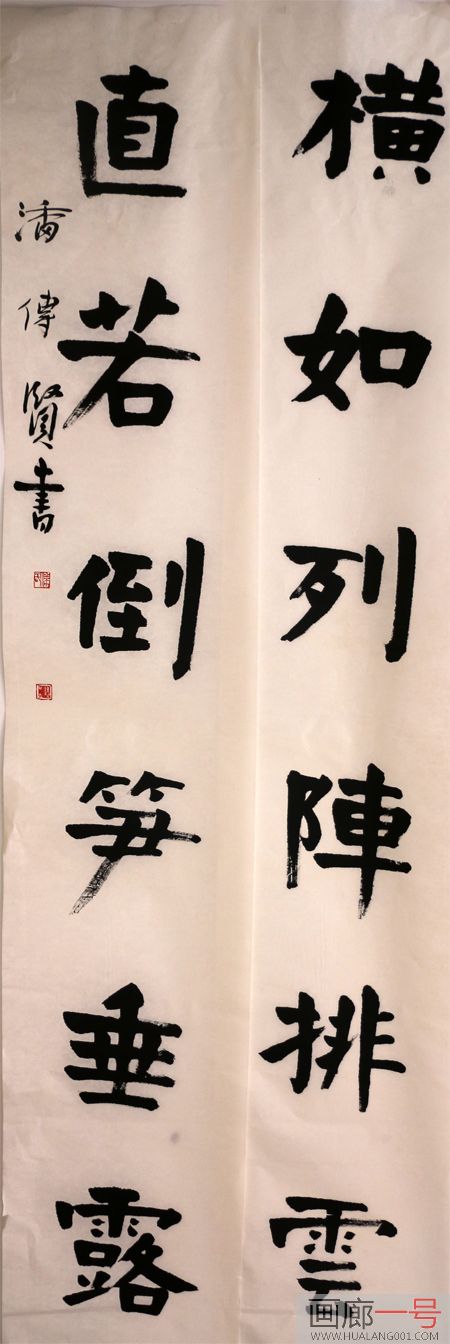 橫如列陣排雲
直若倒笋垂露
潘傳賢書
画廊一号
WWW.HUALANG001.COM